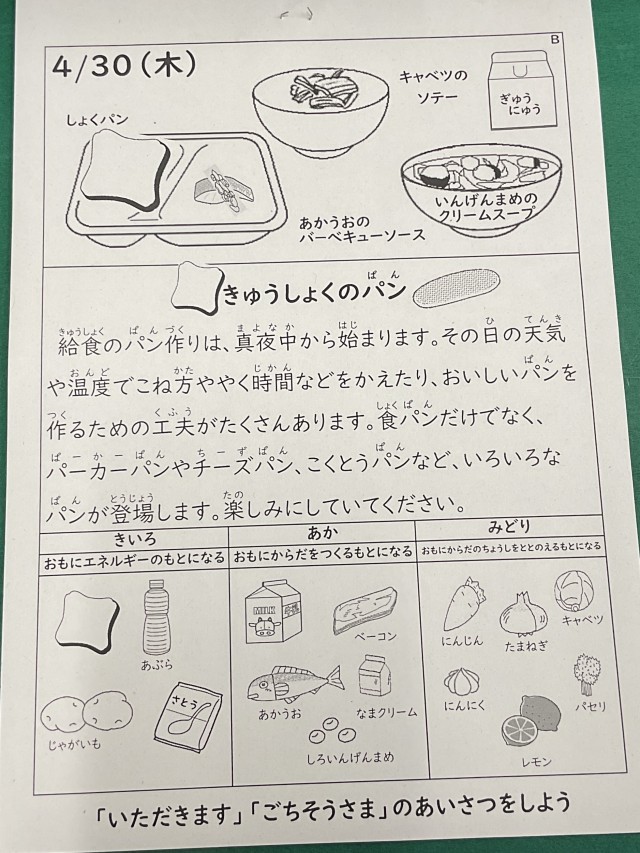 B
4/30(木)
キャベツの
ソテー
ぎゅう
にゅう
しょくパン
いんげんまめの
クリームスープ
あかうおの
バーベキューソース
きゅうしょくのパン
ぱん
きゅうしょく ぱん づく まよなか はじ ひ てんき
給食のパン作りは、真夜中から始まります。その日の天気
おんど かた じかん ぱん
や温度でこね方ややく時間などをかえたり、おいしいパンを
つく くふう しょくぱん
作るための工夫がたくさんあります。食パンだけでなく、
ぱーかーぱん ちーずぱん ぱん
パーカーパンやチーズパン、こくとうパンなど、いろいろな
ぱん とうじょう たの
パンが登場します。楽しみにしていてください。
きいろ
おもにエネルギーのもとになる
あぶら
じゃがいも
さとう
あか
おもにからだをつくるもとになる
MILK
牛乳
ベーコン
あかうお
なまクリーム
しろいんげんまめ
みどり
おもにからだのちょうしをととのえるもとになる
にんじん
たまねぎ
キャベツ
にんにく
パセリ
レモン
「いただきます」「ごちそうさま」のあいさつをしよう